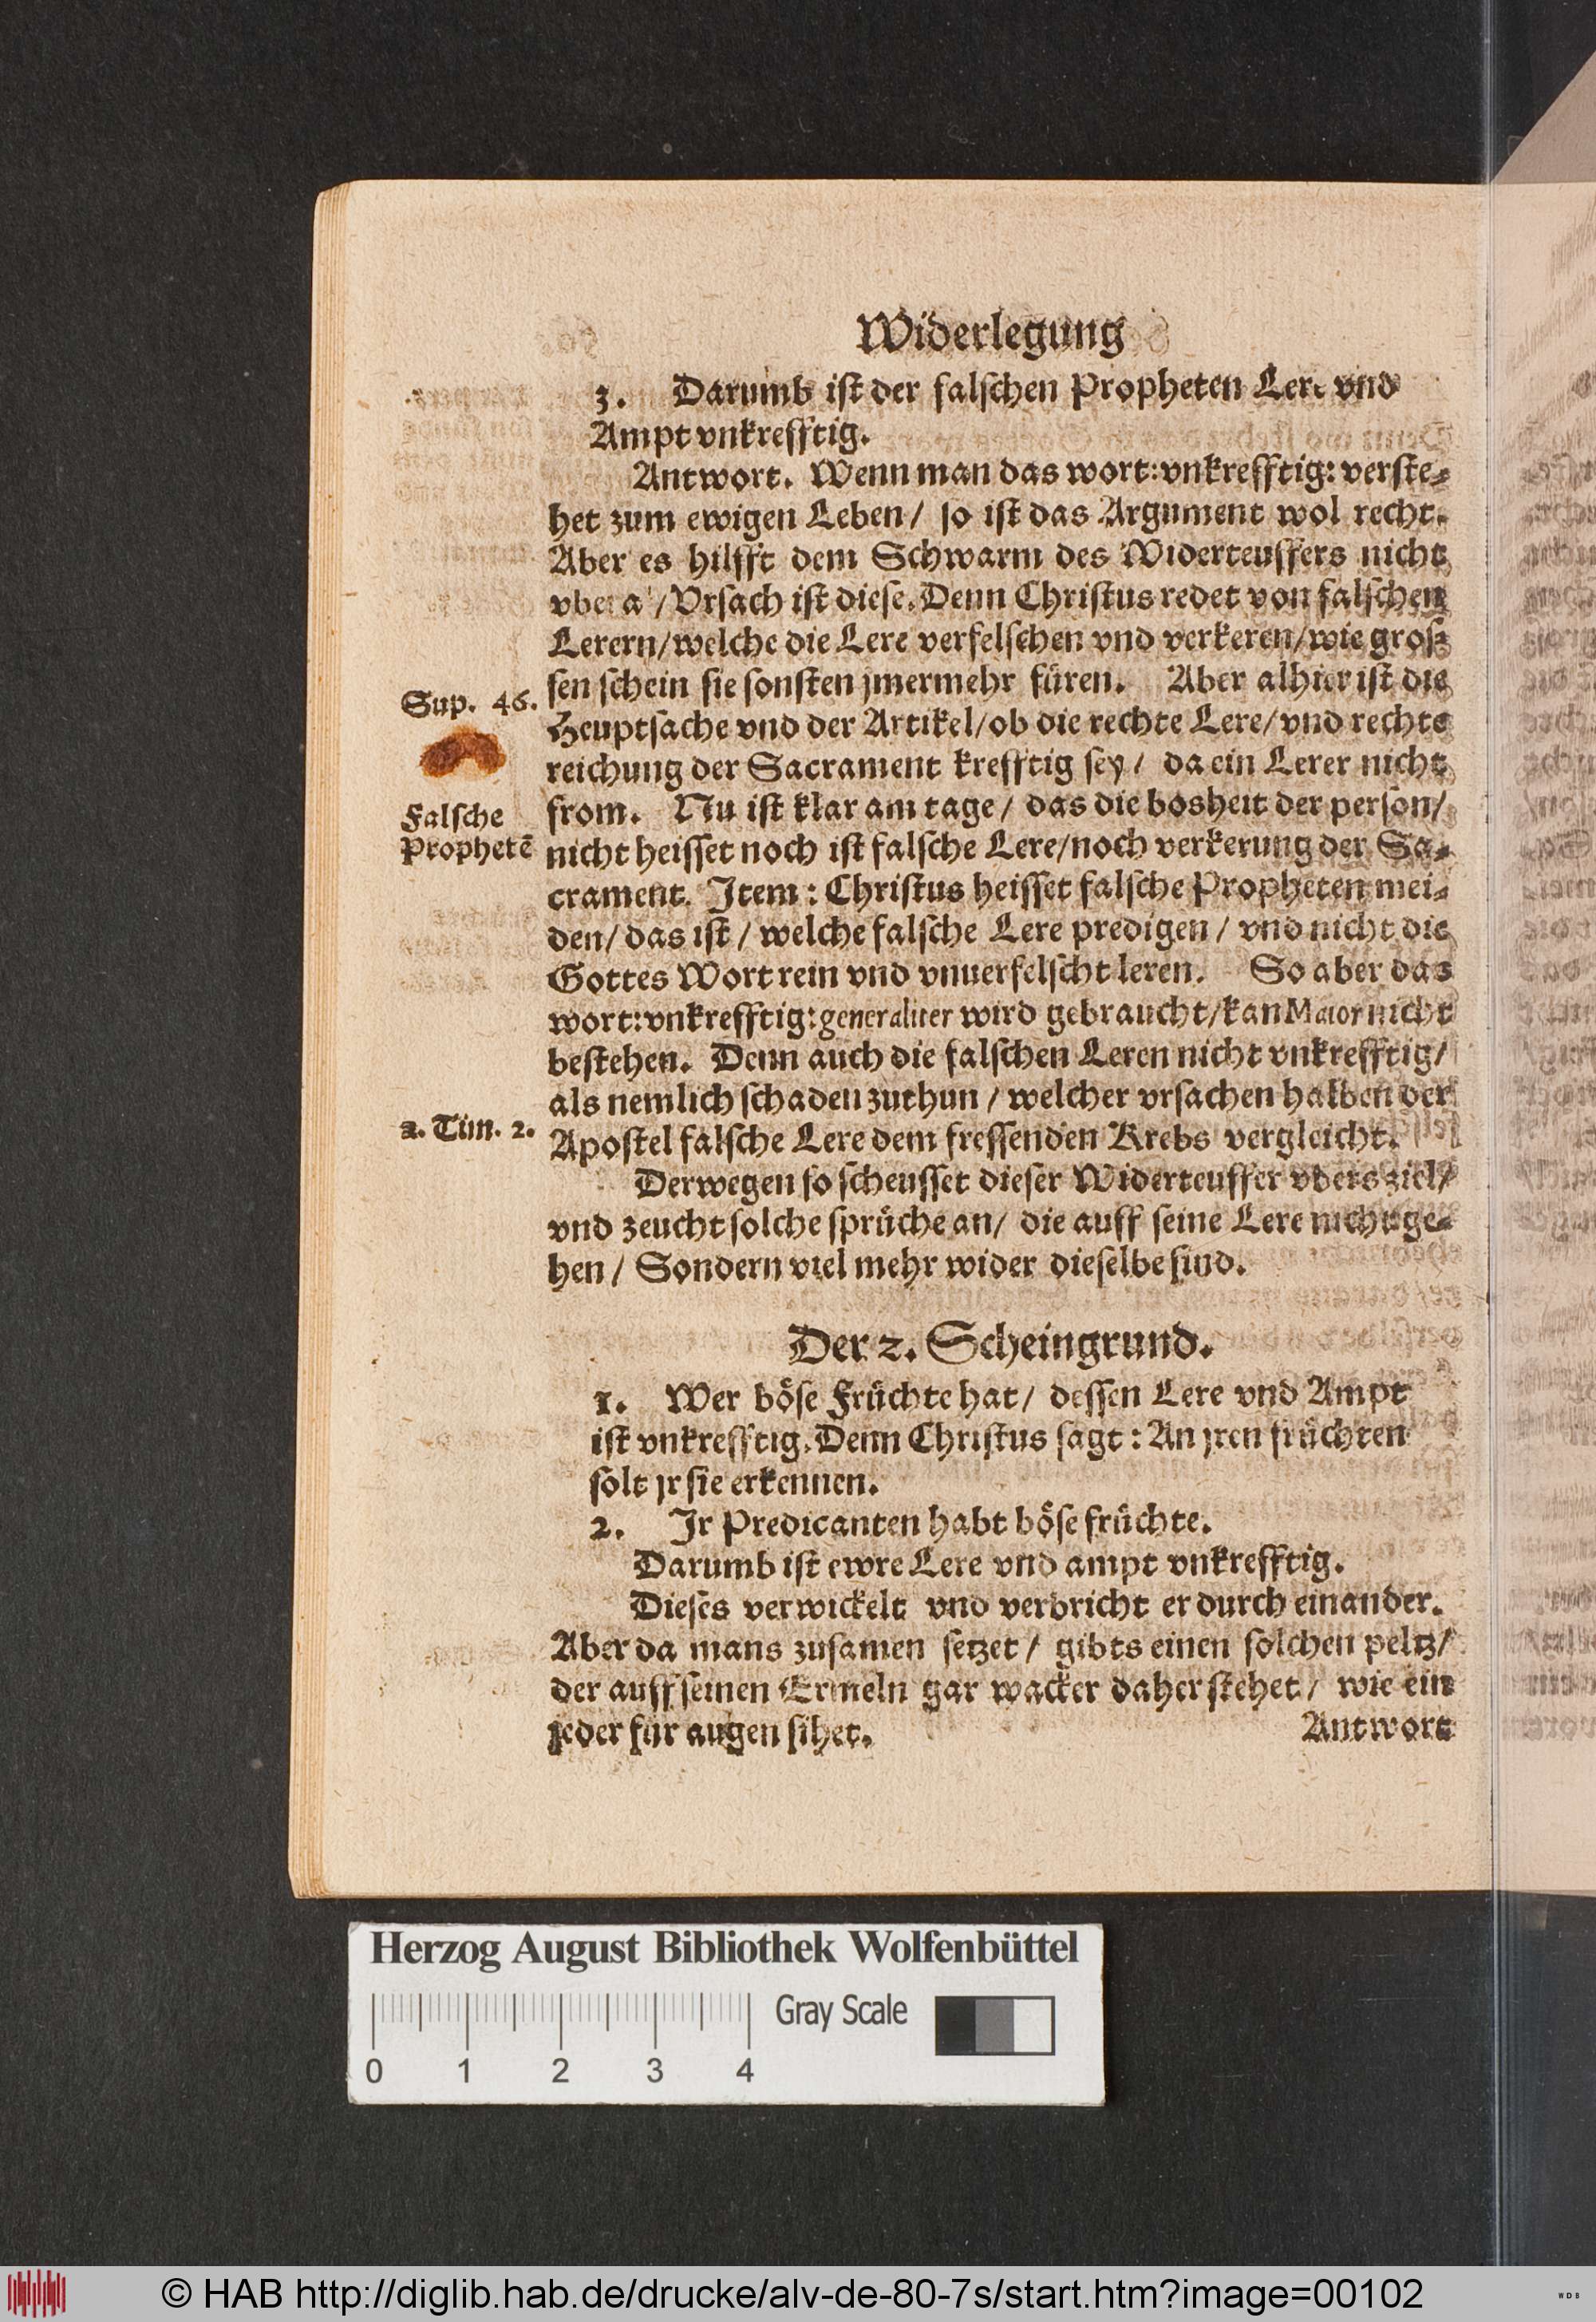 Widerlegung
3. Darumb ist der falschen Propheten Lere vnd
Ampt vnkrefftig.
Antwort. Wenn man das wort: vnkrefftig: verste-
het zum ewigen Leben/ so ist das Argument wol recht.
Aber es hilfft dem Schwarm des Widerteuffers nicht
Vrsach ist diese. Denn Christus redet von falschen
Lerern/ welche die Lere verfelschen vnd verkeren/ wie gros-
sen schein sie sonsten jmermehr füren. Aber alhier ist die
Sup. 46.
Heuptsache vnd der Artikel/ ob die rechte Lere/ vnd rechte
reichung der Sacrament krefftig sey/ da ein Lerer nicht
from. Nu ist klar am tage/ das die bosheit der person/
Falsche
Prophetē
nicht heisset noch ist falsche Lere/ noch verkerung der Sa-
crament. Item: Christus heisset falsche Propheten mei-
den/ das ist/ welche falsche Lere predigen/ vnd nicht die
Gottes Wort rein vnd vnuerfelscht leren. So aber das
wort: vnkrefftig: generaliter wird gebraucht/ kan Maior nicht
bestehen. Denn auch die falschen Leren nicht vnkrefftig/
als nemlich schaden zuthun/ welcher vrsachen halben der
2. Tim. 2.
Apostel falsche Lere dem fressenden Krebs vergleicht.
Derwegen so scheusset dieser Widerteuffer vbers ziel/
vnd zeucht solche sprüche an/ die auff seine Lere nicht ge-
hen/ Sondern viel mehr wider dieselbe sind.
Der 2. Scheingrund.
1. Wer böse Früchte hat/ dessen Lere vnd Ampt
ist vnkrefftig. Denn Christus sagt: An jren früchten
solt jr sie erkennen.
2. Ir Predicanten habt böse früchte.
Darumb ist ewre Lere vnd ampt vnkrefftig.
Dieses verwickelt vnd verbricht er durch einander.
Aber da mans zusamen setzet/ gibts einen solchen peltz/
der auff seinen Ermeln gar wacker daher stehet/ wie ein
jeder für augen sihet.
Antwort
Herzog August Bibliothek Wolfenbüttel
Gray Scale
0 1 2 3 4
© HAB http://diglib.hab.de/drucke/alv-de-80-7s/start.htm?image=00102
WDB